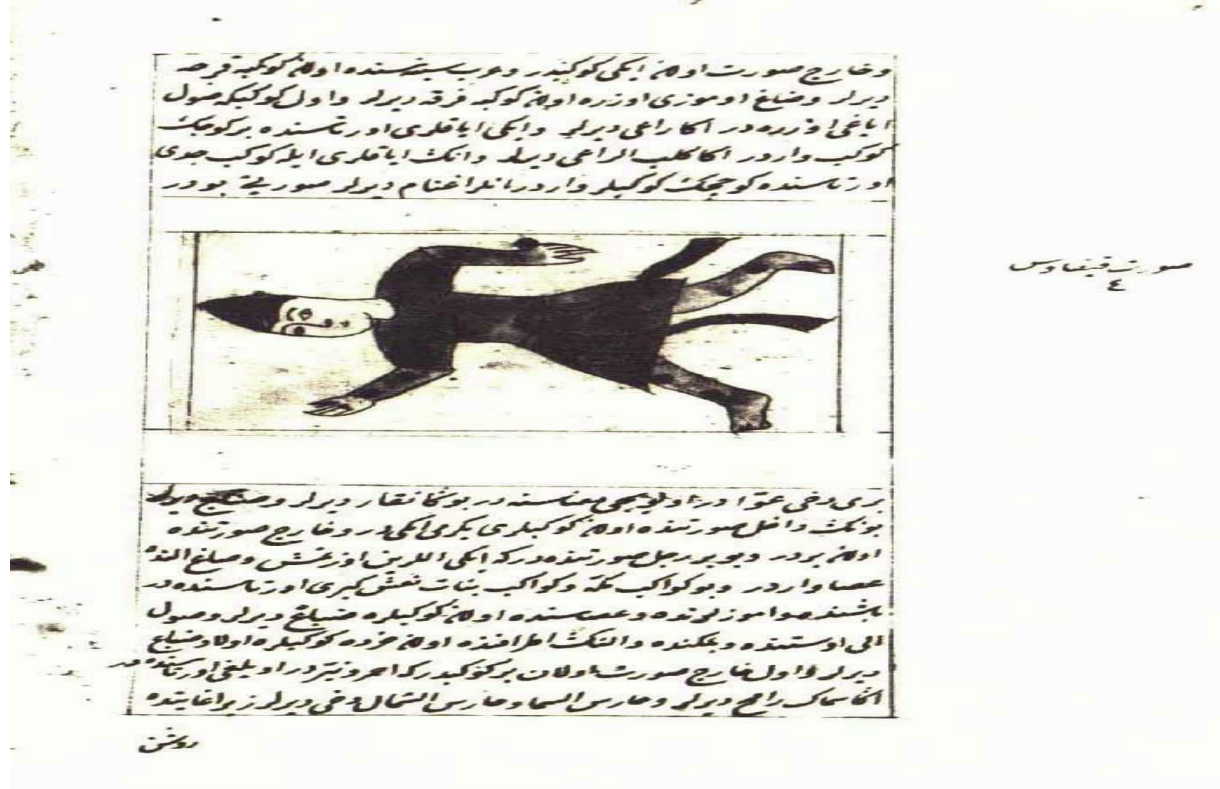 و خارج صورت اولان ایکی کوکبدر و عرب سینه‌سنده اولان کوکبه قرحه
دیرلر و صاغ اوموزی اوزره اولان کوکبه فرقه دیرلر و اول کوکبکه صول
ایاغی اوزره در اکا راعی دیرلر و ایکی ایاقلری اورتاسنده بر کوچک
کوکب واردر اکا کلب الراعی دیرلر و انک ایاقلری ایله کوکب جدی
اورتاسنده کوچجک کوکبلر واردر انلره اغنام دیرلر صورتی بودر
صورت قیفاوس
٤
بری دخی عوّا در معناسنه در بوکا نقار دیرلر و دیرلر
بونک داخل صورتنده اولان کوکبلری یکرمی ایکی در و خارج صورتنده
اولان بردر و بو بر رجل صورتنده در که ایکی اللرین اوزتمش و صاغ النده
عصا واردر و بو کواکب فکه و کواکب بنات نعش کبری اورتاسنده در
باشنده و اموزلرنده و عصاسنده اولان کوکبلره ضباع دیرلر و صول
الی اوستنده و بلکنده و النک اطرافنده اولان خرده کوکبلره اولاد ضباع
دیرلر و اول خارج صورت اولان بر کوکبدر که احمر و نیّردر اویلغی اورتاسنده در
اکا سماک رامح دیرلر و حارس السما و حارس الشمال دخی دیرلر زیرا غایتده
روشن